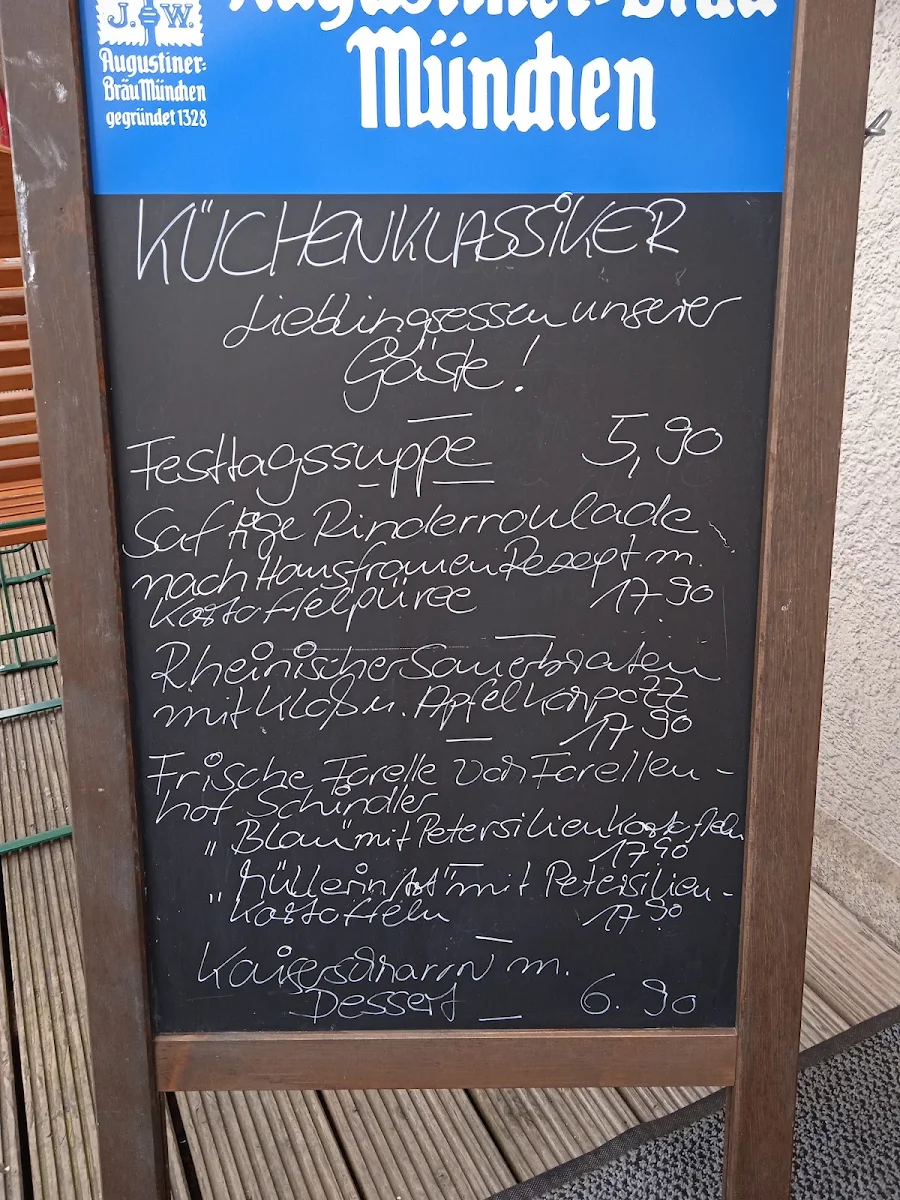 Augustiner-Bräu
München
J. W.
Augustiner-
Bräu München
gegründet 1328
KÜCHENKLASSIKER
Lieblingsessen unserer
Gäste!
Festtagssuppe 5,90
Saftige Rinderroulade
nach Hausfrauen Rezept m.
Kartoffelpüree 17 90
Rheinischer Sauerbraten
mit Kloß u. Apfelkompott
17 90
Frische Forelle von Forellen-
hof Schindler
"Blau" mit Petersilienkartoffeln
17 90
"Müllerin Art" mit Petersilien-
kartoffeln 17 90
Kaiserschmarrn m.
Dessert 6.90